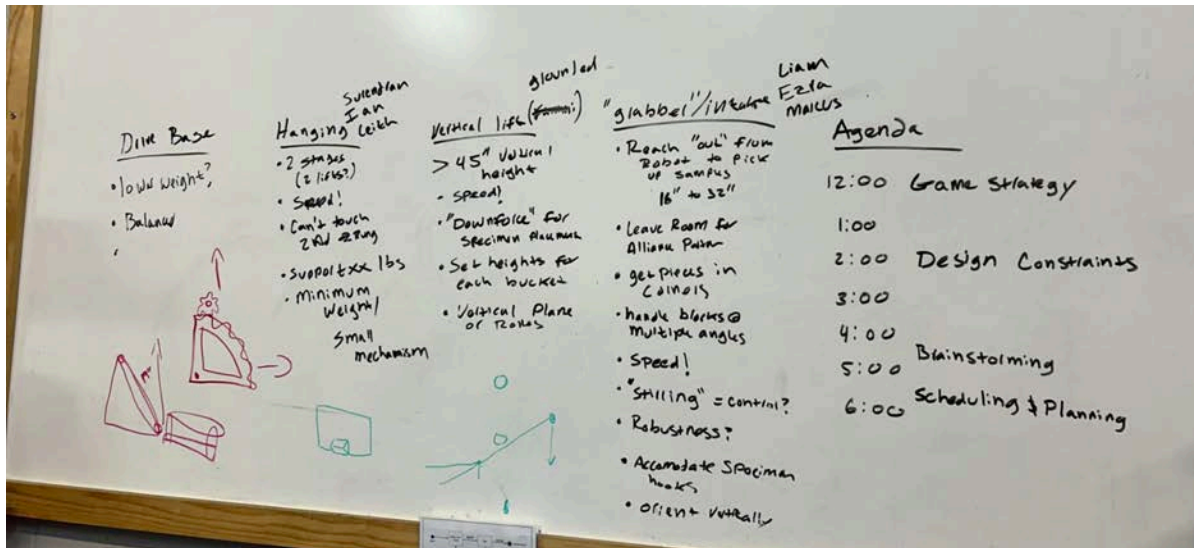 Drive Base
• low weight?
• Balanced
•
Ian
Hanging Leith
• 2 stages
(2 lifts?)
• Speed!
• Can't touch
2nd rung
• Support xx lbs
• Minimum
Weight/
Small
mechanism
grounded
Vertical lift
> 45" Vertical
height
• Speed!
• "Downforce" for
Specimen Placement
• Set heights for
each bucket
• Vertical Plane
or
Liam
Ezra
Marcus
"grabber"/intake
• Reach "out" from
Robot to Pick
up samples
18" to 32"
• Leave Room for
Alliance
• get pieces in
Corners
• handle blocks @
Multiple angles
• Speed!
= control?
• Robustness?
• Accomodate Speciman
hooks
• orient vertically
Agenda
12:00 Game Strategy
1:00
2:00 Design Constraints
3:00
4:00
5:00 Brainstorming
6:00 Scheduling & Planning